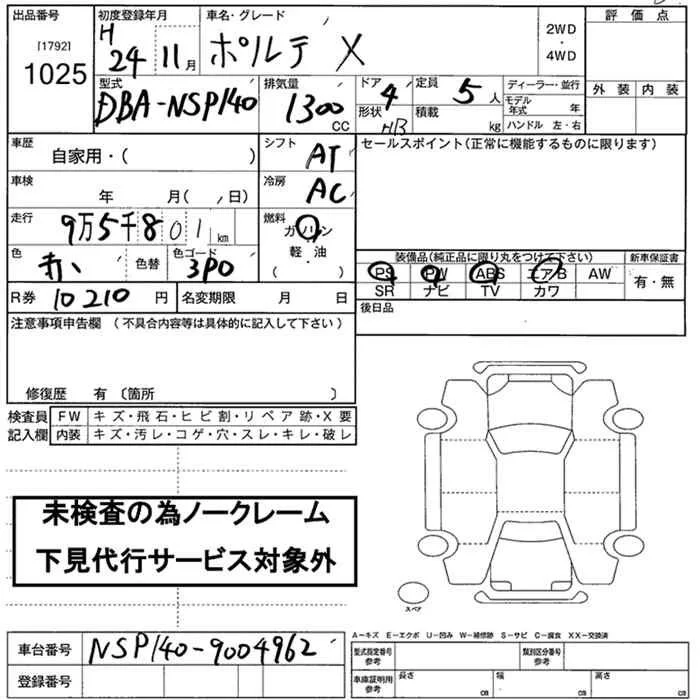 出品番号
[1792]
1025
初度登録年月
H
24 11月
車名・グレード
ポルテ X
2WD
・
4WD
評価点
外装 内装
型式
DBA-NSP140
排気量
1300
CC
ドア
4
形状
H/B
定員
5人
積載
kg
ディーラー・並行
モデル年式 年
ハンドル 左・右
車歴
自家用・( )
シフト
AT
セールスポイント(正常に機能するものに限ります)
車検
年 月( , 日)
冷房
AC
走行
9万5千801km
燃料
ガソリン
軽・油
色
赤い
色替
色コード
3P0
装備品(純正品に限り丸をつけて下さい)
PS PW ABS エアB AW
SR ナビ TV カワ
新車保証書
有・無
R券 10210 円
名変期限 月 日
後日品
注意事項申告欄 (不具合内容等は具体的に記入して下さい)
修復歴 有 〔箇所 〕
検査員記入欄
FW キズ・飛石・ヒビ割・リペア跡・X要
内装 キズ・汚レ・コゲ・穴・スレ・キレ・破レ
未検査の為ノークレーム
下見代行サービス対象外
スペア
A-キズ E-エクボ U-凹み W-補修跡 S-サビ C-腐食 XX-交換済
車台番号 NSP140-9004962
登録番号
型式指定番号
参考
類別区分番号
参考
車庫証明用
参考
長さ cm
幅 cm
高さ cm